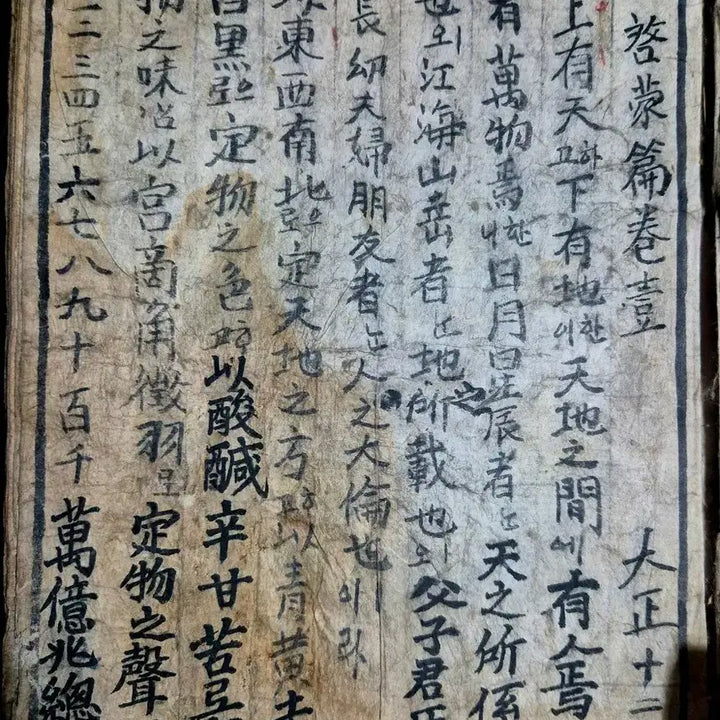 啓蒙篇卷壹 大正十二
上有天하고下有地한의天地之間에有人焉
有萬物焉한니日月星辰者는天之所係
也외江海山岳者는地之所載也외父子君臣
長幼夫婦朋友者는人之大倫也이라
以東西南北으로定天地之方하고以青黃
白黑으로定物之色하고以酸醎辛甘苦로
物之味하고以宮商角徵羽로定物之聲
二三四五六七八九十百千萬億兆總